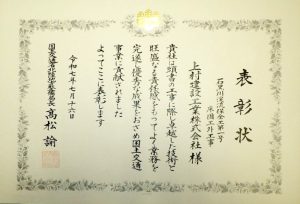 表彰状
石黒川渓流保全工第二号
床固工外工事
上村建設工業株式会社 様
貴社は頭書の工事に際し卓越した技術と
旺盛なる責任感をもってよく業務を
完遂し優秀な成果をおさめ国土交通
事業に貢献されました
よってここに表彰します
令和七年七月十六日
国土交通省北陸地方整備局長
髙松 諭